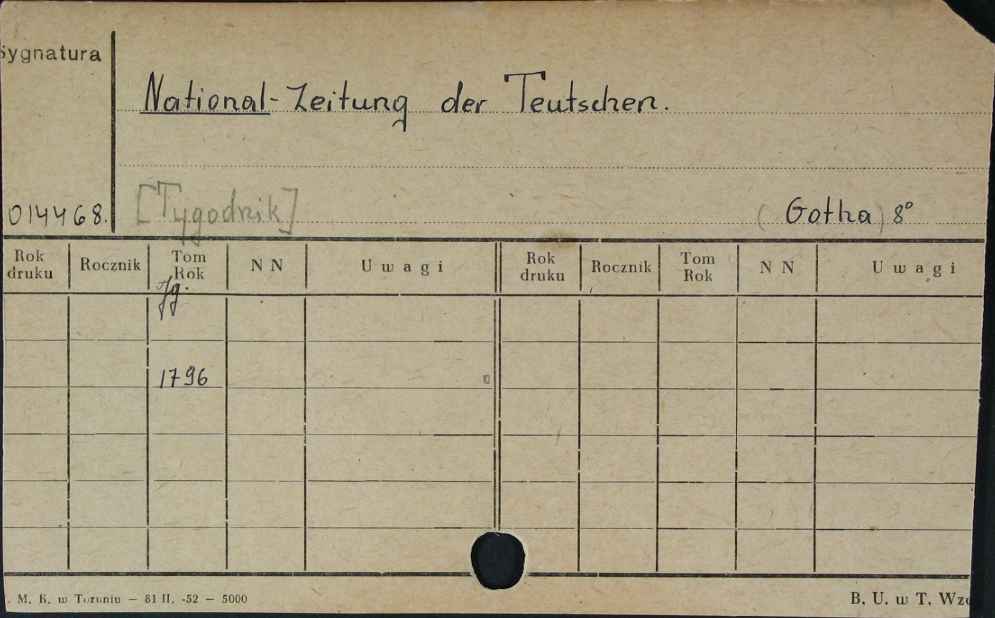 Sygnatura
National-Zeitung der Teutschen.
014468. [Tygodnik] (Gotha) 8°
Rok druku Rocznik Tom Rok N N Uwagi Rok druku Rocznik Tom Rok N N Uwagi
Jg.
1796
. M. K. w Toruniu – 81 II. -52 – 5000 B. U. w T. Wzó